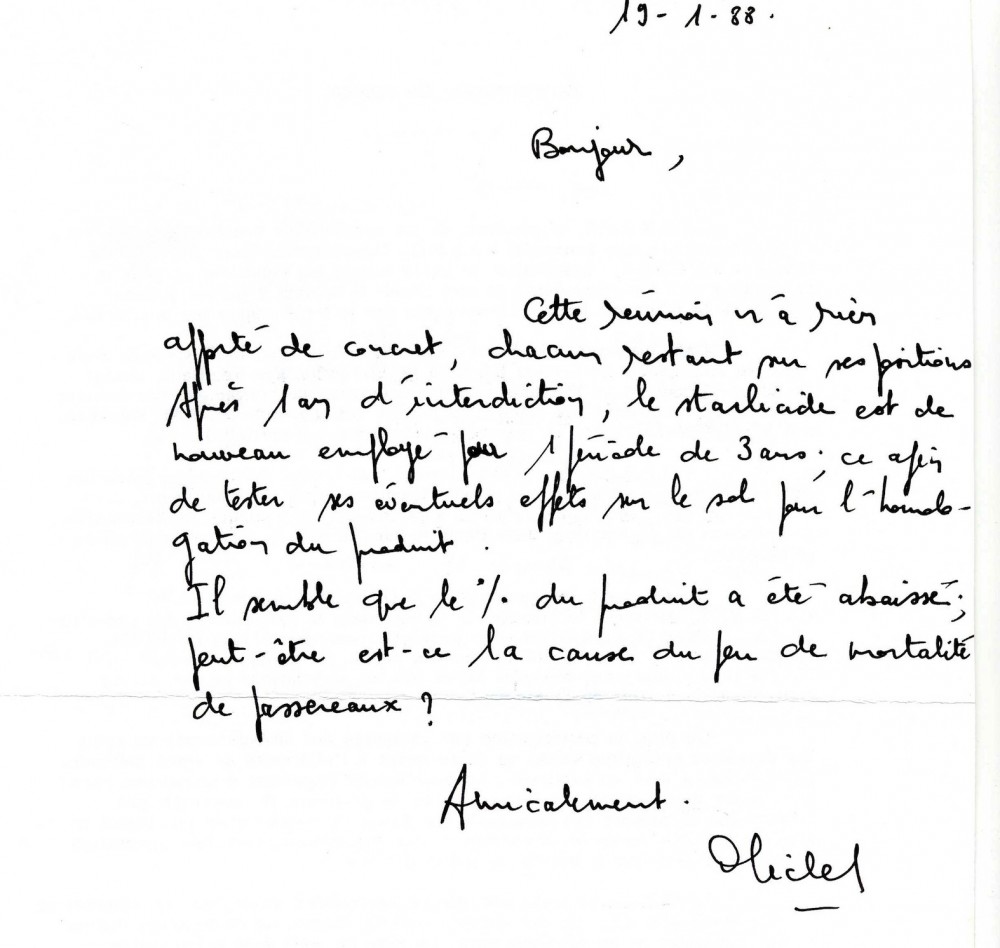 19-1-88.
Bonjour,
Cette réunion n'a rien
apporté de concret, chacun restant sur ses positions
Après 1 an d'interdiction, le starlicide est de
nouveau employé pour 1 période de 3 ans ; ce afin
de tester ses éventuels effets sur le sol pour l'homolo-
gation du produit.
Il semble que le % du produit a été abaissé ;
peut-être est-ce la cause du peu de mortalité
de passereaux ?
Amicalement.
Michel